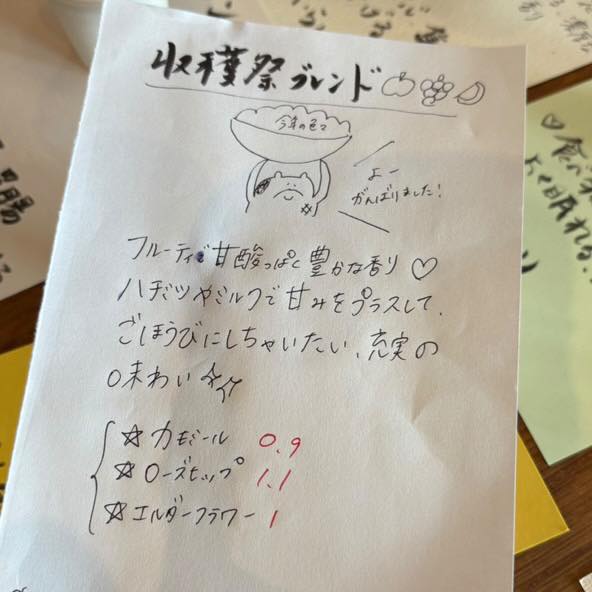 収穫祭ブレンド
今年の色々
よー
がんばりました!
フルーティで甘酸っぱく豊かな香り♡
ハチミツやミルクで甘みをプラスして、
ごほうびにしちゃいたい、充実の
味わい
☆カモミール 0.9
☆ローズヒップ 1.1
☆エルダーフラワー 1